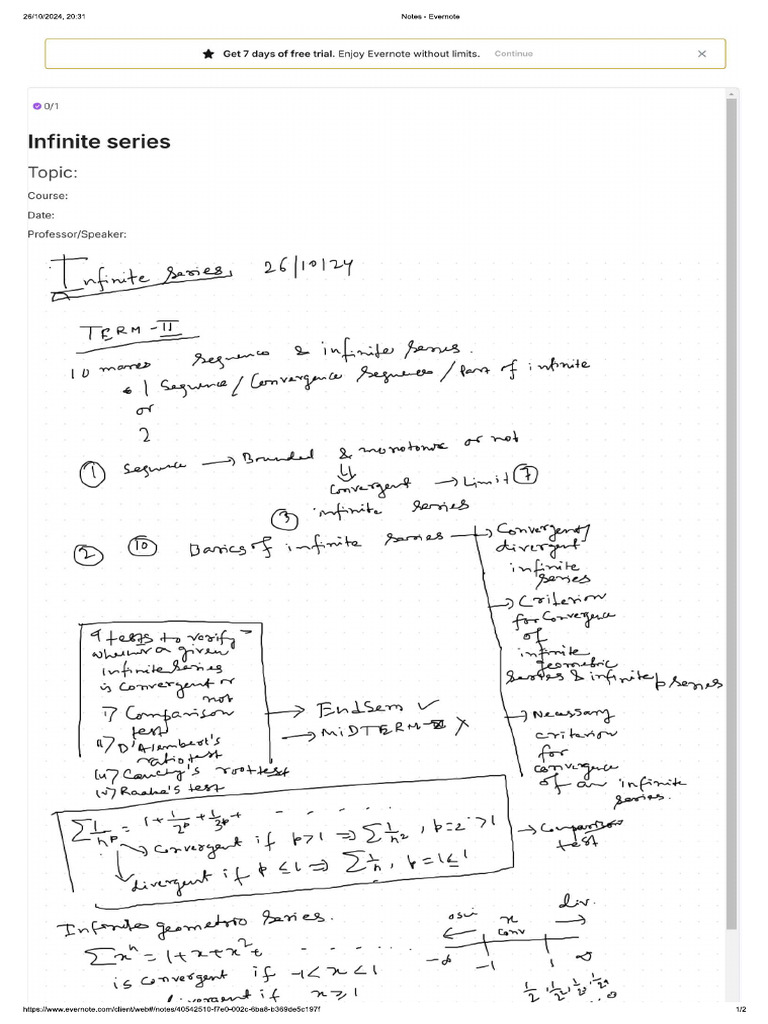 26/10/2024, 20:31
Notes - Evernote
Get 7 days of free trial. Enjoy Evernote without limits. Continue
0/1
Infinite series
Topic:
Course:
Date:
Professor/Speaker:
Infinite series, 26/10/24
TERM - II
10 Sequence & infinite series.
1 Sequence / Convergence Sequences / part of infinite
or
2
① Sequence → Bounded & monotone or not
⇓
convergent → Limit ⑦
③ infinite series
② ⑩ Basics of infinite series → Convergent/
divergent
infinite
series
→ Criterion
for convergence
of
infinite
geometric
series & infinite p series
→ Necessary
criterion
for
convergence
of an infinite
series.
→ Comparison
test
tests to verify
whether a given
infinite series
is convergent or
not
i) Comparison
test
ii) D'Alembert's
ratio test
Cauchy's root test
Raabe's test
→ EndSem ✓
→ MIDTERM-II X
∑ 1/n^p = 1 + 1/2^p + 1/3^p + ------
→ Convergent if p>1 ⇒ ∑ 1/n², p=2>1
divergent if p ≤ 1 ⇒ ∑ 1/n, p=1≤1
Infinite geometric series.
∑ x^n = 1+x+x²+ - - - - - -
is convergent if -1<x<1
divergent if x ≥ 1
osci x div.
conv
-∞ -1 1 ∞
https://www.evernote.com/client/web#/notes/40542510-f7e0-002c-6ba8-b369de5c197f
1/2